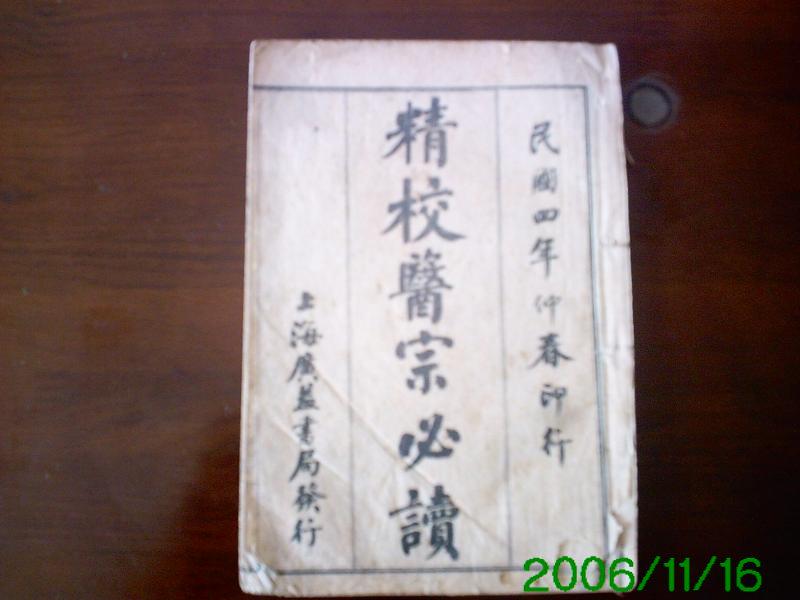 民國四年仲春印行
精校醫宗必讀
上海廣益書局發行
2006/11/16